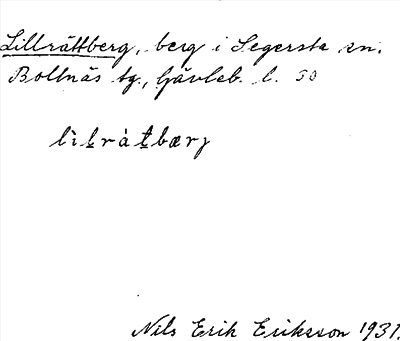 Lillråttberg, berg i Segersta sn.
Bollnäs tg., Gävleb. l. 50
lìl̠rát̠bærj
Nils Erik Eriksson 1931.